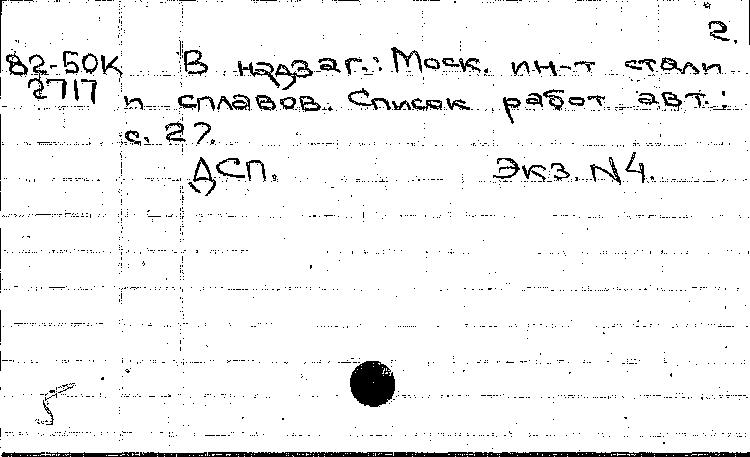 2.
82-50К В надзаг.: Моск. ин-т стали
2717 и сплавов. Список работ авт.:
с. 27.
ДСП. Экз. N4.
5